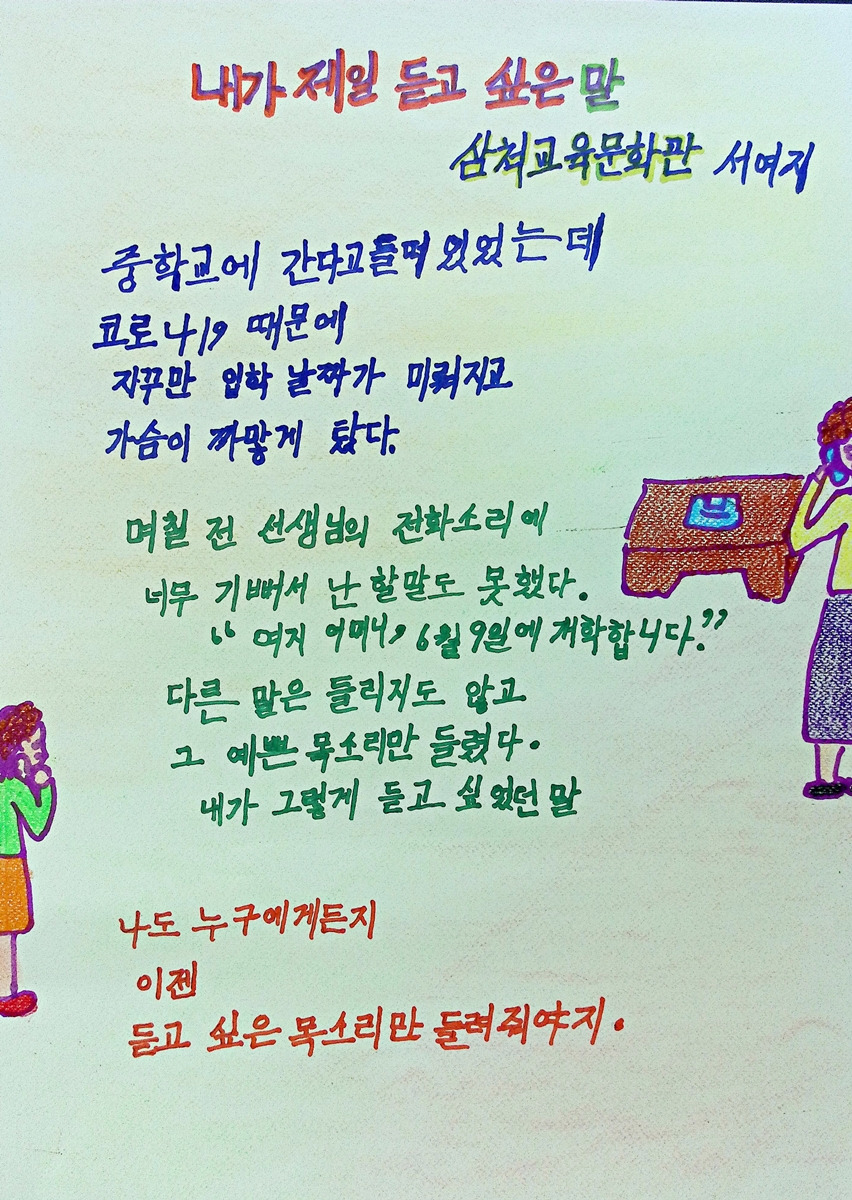 내가 제일 듣고 싶은 말
삼척교육문화관 서여지
중학교에 간다고 들떠 있었는데
코로나19 때문에
자꾸만 입학 날짜가 미뤄지고
가슴이 까맣게 탔다.
며칠 전 선생님의 전화소리에
너무 기뻐서 난 할말도 못했다.
“여지 어머니, 6월 9일에 개학합니다.”
다른 말은 들리지도 않고
그 예쁜 목소리만 들렸다.
내가 그렇게 듣고 싶었던 말
나도 누구에게든지
이젠
듣고 싶은 목소리만 들려줘야지.